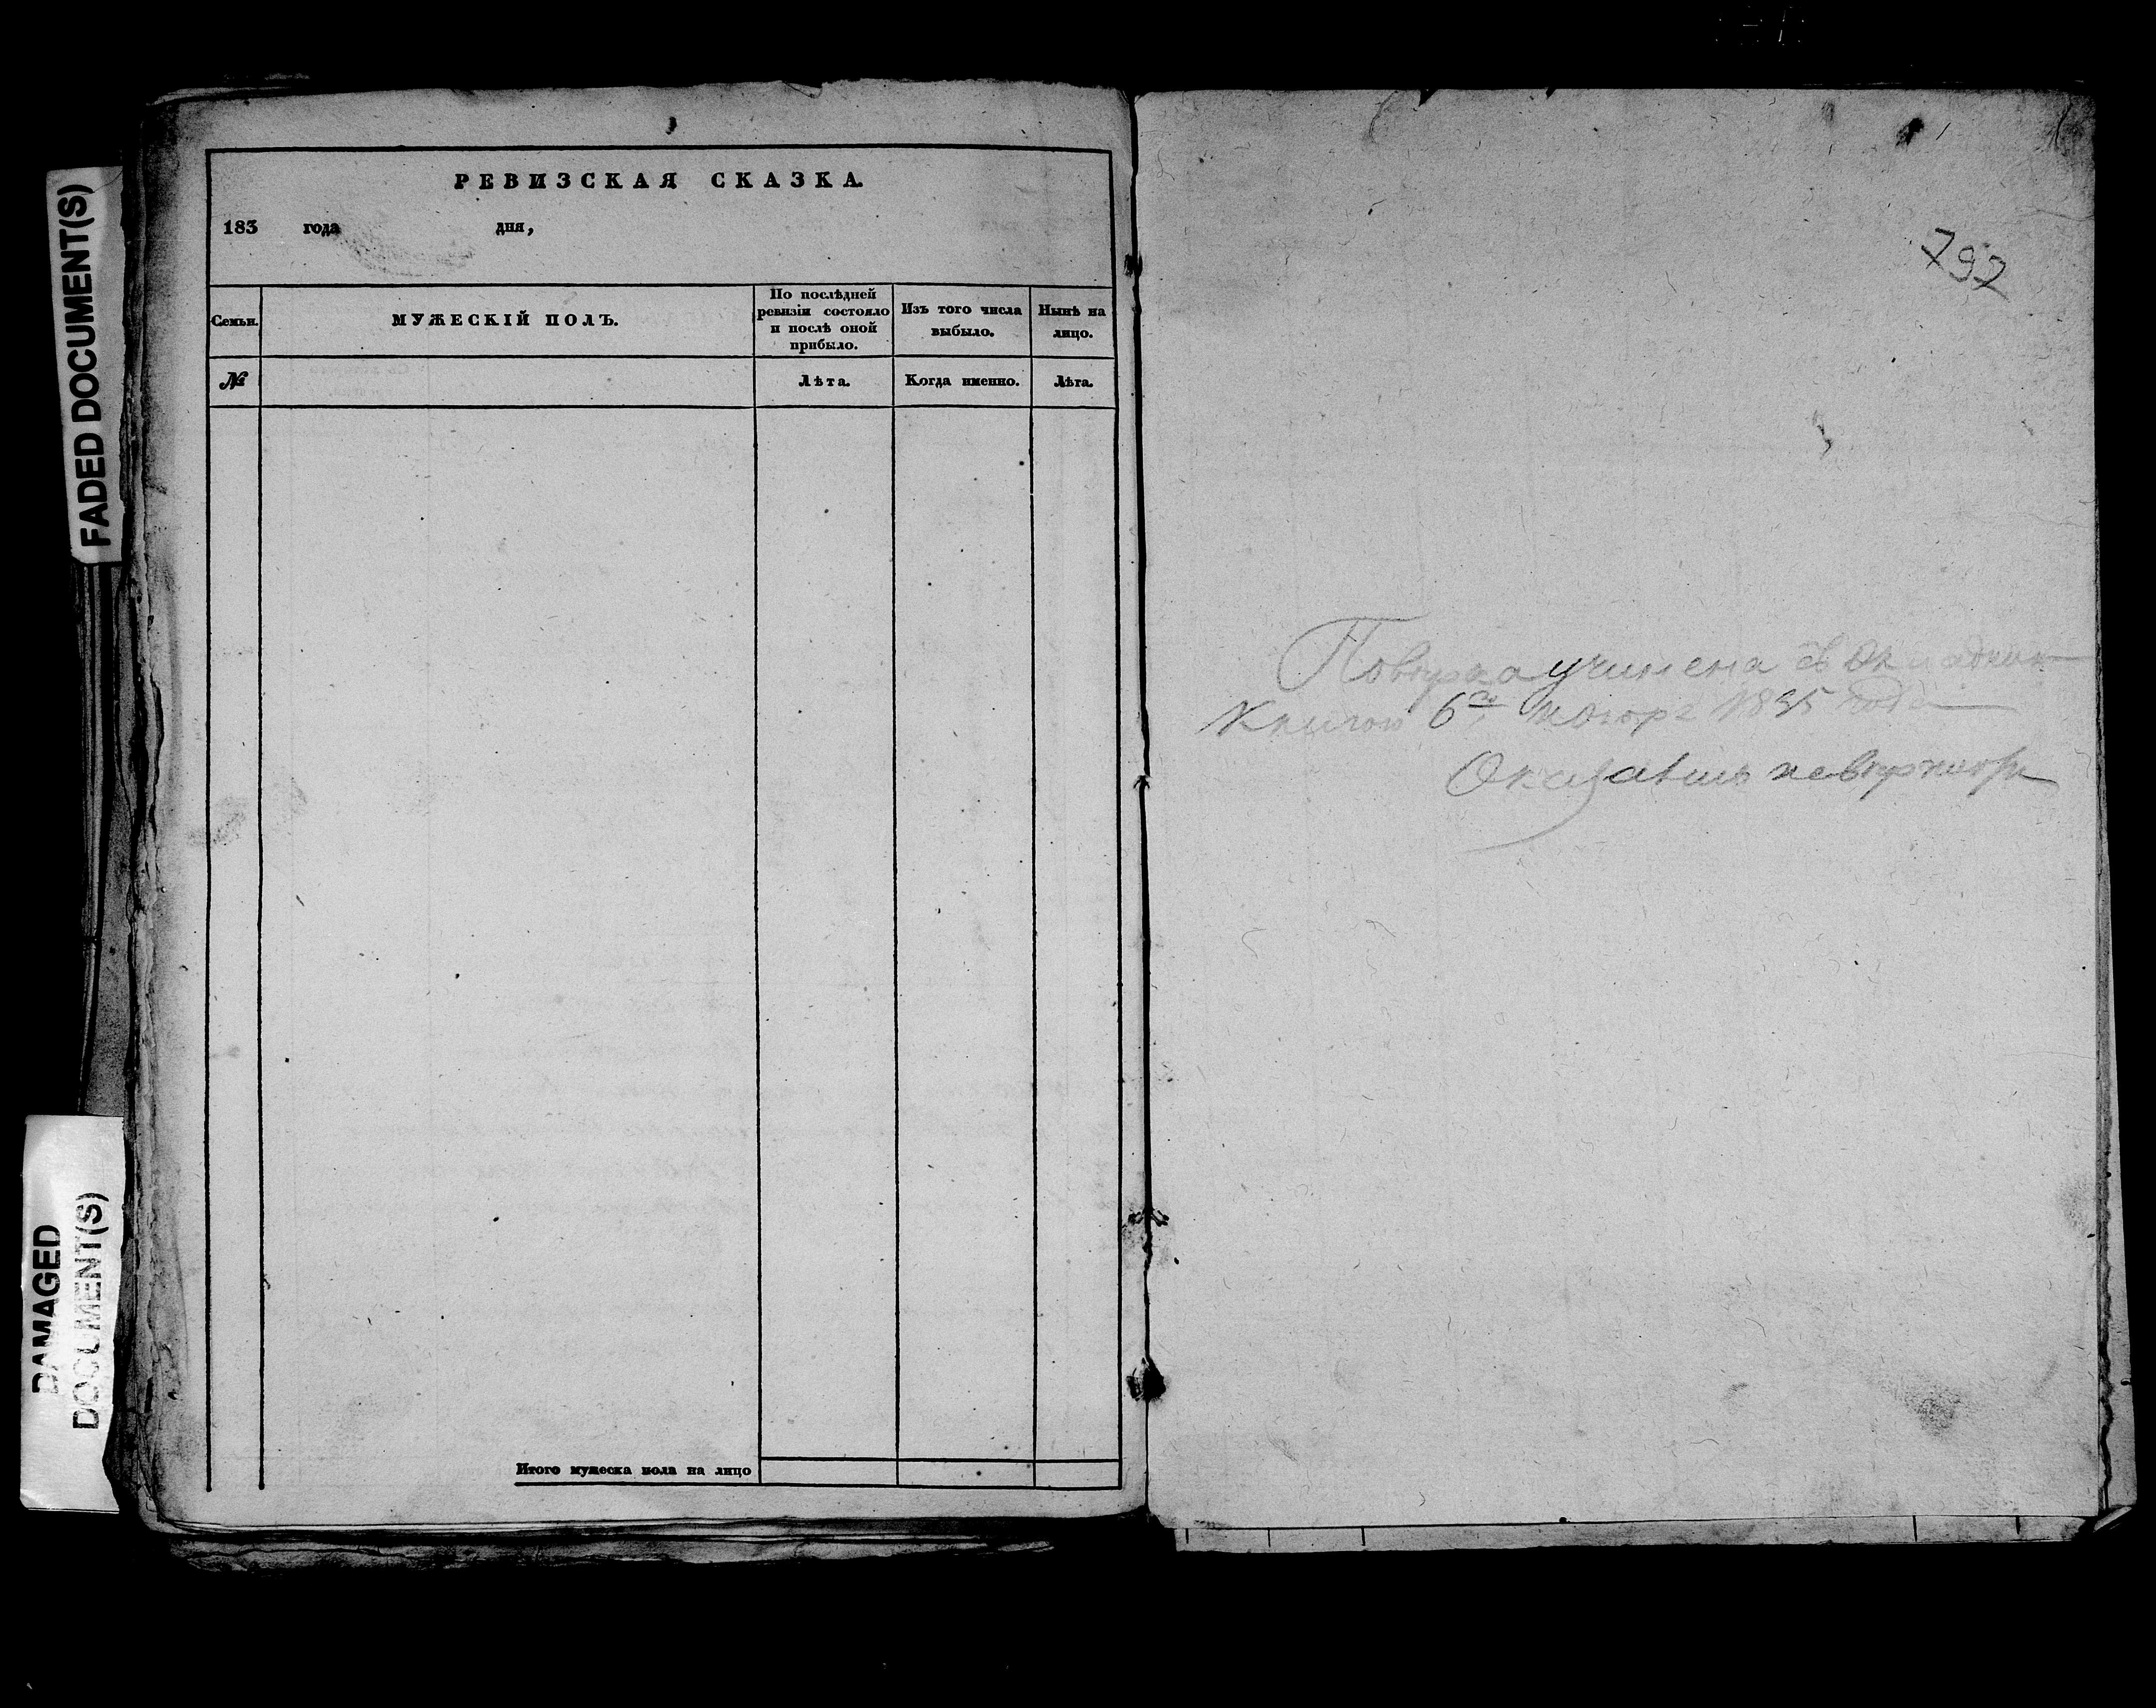 FADED DOCUMENT(S)
DAMAGED
DOCUMENT(S)
РЕВИЗСКАЯ СКАЗКА.
183 года дня,
Семьи.
МУЖЕСКІЙ ПОЛЪ.
По послѣдней
ревизіи состояло
и послѣ оной
прибыло.
Изъ того числа
выбыло.
Нынѣ на
лицо.
№
Лѣта.
Когда именно.
Лѣта.
Итого мужеска пола на лицо
792
Повѣрка учинена съ
Книгою 6го 1835 года
Оказались